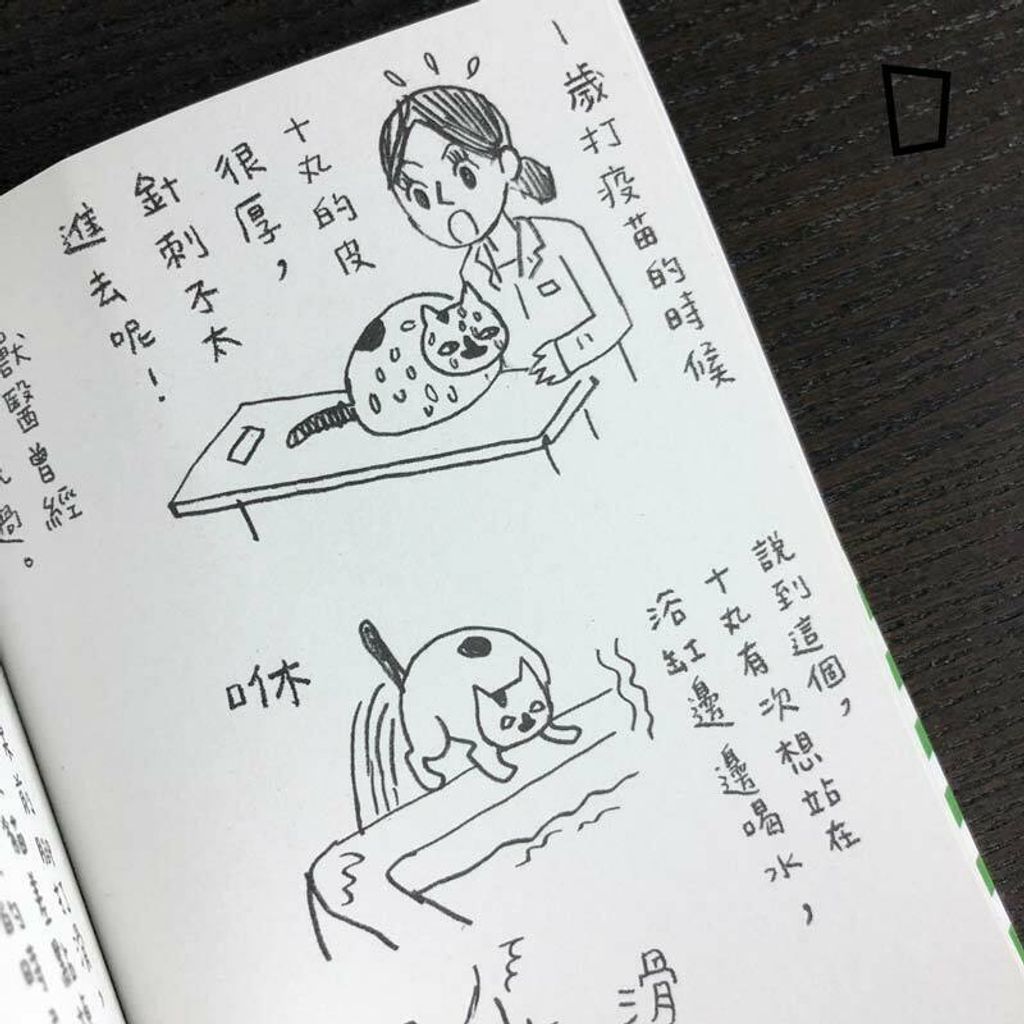 一歲打疫苗的時候
十丸的皮
很厚，
針刺不太
進去呢！
獸醫曾經
說到這個，
十丸有次想站在
浴缸邊邊喝水，
咻
滑